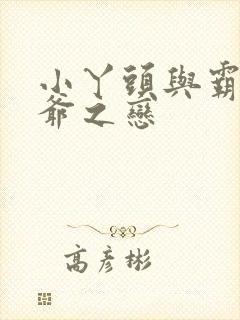 小丫頭與霸
爺之戀
高彥彬